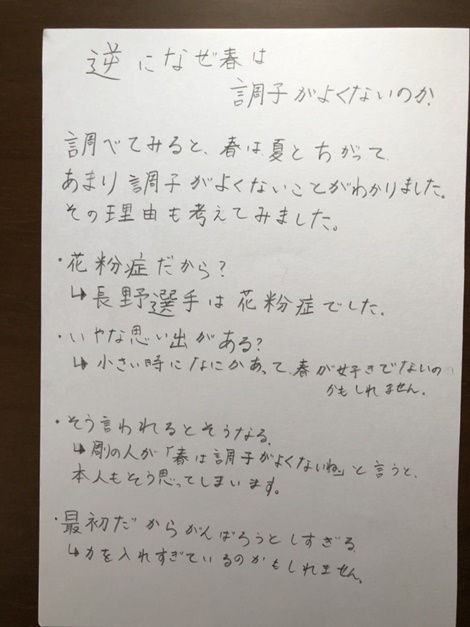 逆になぜ春は
調子がよくないのか
調べてみると、春は夏とちがって
あまり調子がよくないことがわかりました。
その理由も考えてみました。
・花粉症だから?
↳長野選手は花粉症でした。
・いやな思い出がある?
↳小さい時になにかあって、春が好きでないの
かもしれません。
・そう言われるとそうなる。
↳周りの人が「春は調子がよくないね」と言うと、
本人もそう思ってしまいます。
・最初だからがんばろうとしすぎる
↳力を入れすぎているのかもしれません。